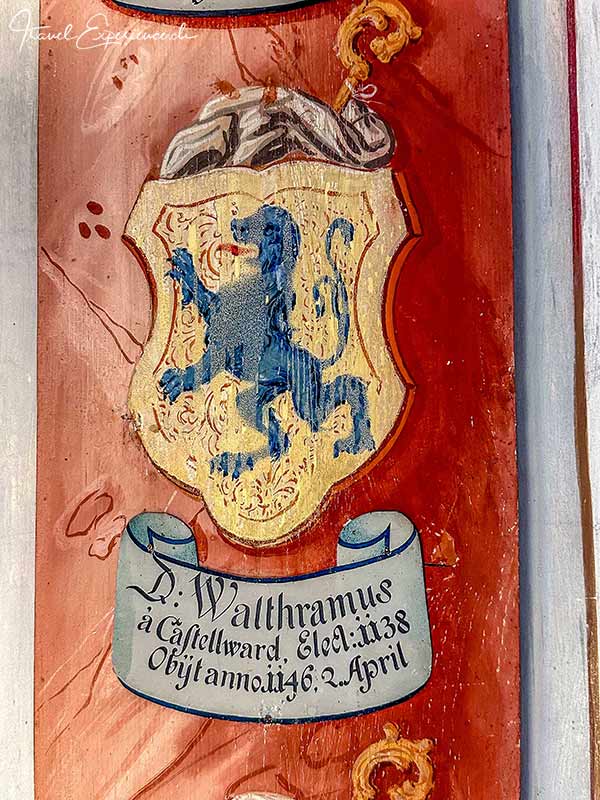 Travel Experience.ch
D: Walthramus
á Castellward, Elect: 1138
Obijt anno. 1146. 2. April